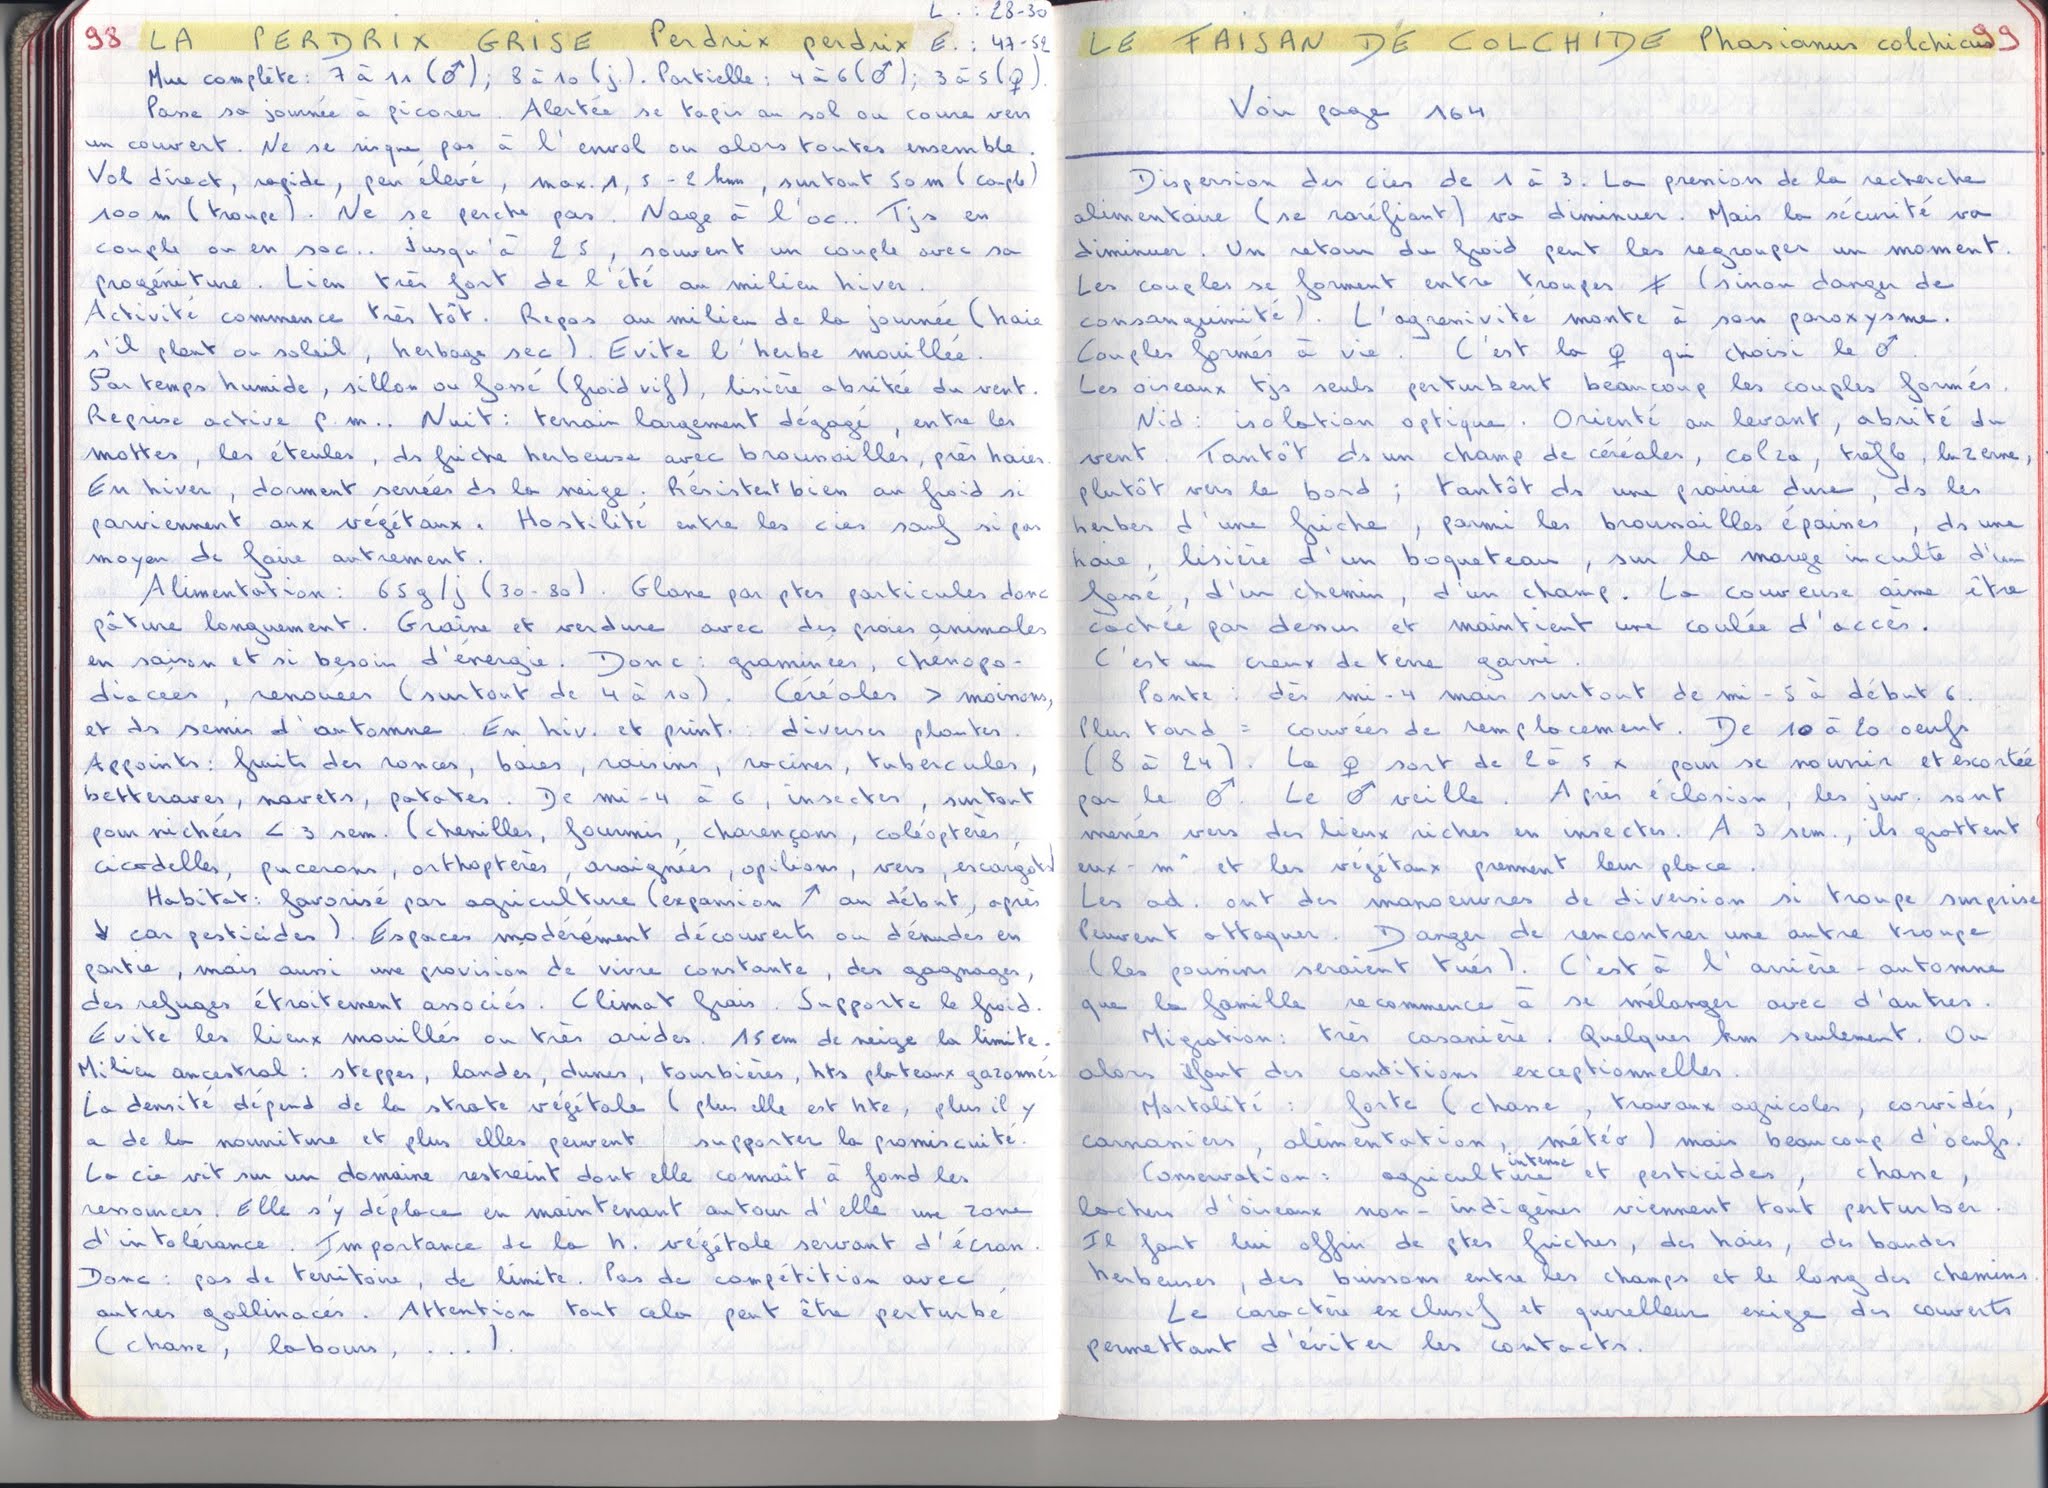 L. : 28-30
98 LA PERDRIX GRISE Perdrix perdrix E. : 47-52
Mue complète : 7 à 11 (♂) ; 8 à 10 (j.). Partielle : 4 à 6 (♂) ; 3 à 5 (♀).
Passe sa journée à picorer. Alertée se tapir au sol ou coure vers
un couvert. Ne se risque pas à l'envol ou alors toutes ensemble.
Vol direct, rapide, peu élevé, max. 1,5 - 2 km, surtout 50 m (couple)
100 m (troupe). Ne se perche pas. Nage à l'oc.. Tjs en
couple ou en soc.. Jusqu'à 25, souvent un couple avec sa
progéniture. Lien très fort de l'été au milieu hiver.
Activité commence très tôt. Repos au milieu de la journée (haie
s'il pleut ou soleil, herbage sec). Evite l'herbe mouillée.
Par temps humide, sillon ou fossé (froid vif), lisière abritée du vent.
Reprise active p.m.. Nuit : terrain largement dégagé, entre les
mottes, les éteules, ds friche herbeuse avec broussailles, près haies.
En hiver, dorment serrées ds la neige. Résistent bien au froid si
parviennent aux végétaux. Hostilité entre les cies sauf si pas
moyen de faire autrement.
Alimentation : 65 g/j (30-80). Glane par ptes particules donc
pâture longuement. Graine et verdure avec des proies animales
en saison et si besoin d'énergie. Donc : graminées, chénopo-
diacées, renouées (surtout de 4 à 10). Céréales > moissons,
et ds semis d'automne. En hiv. et print. : diverses plantes.
Appoints : fruits des ronces, baies, raisins, racines, tubercules,
betteraves, navets, patates. De mi-4 à 6, insectes, surtout
pour nichées < 3 sem. (chenilles, fourmis, charençons, coléoptères,
cicadelles, pucerons, orthoptères, araignées, opilions, vers, escargots)
Habitat : favorisé par agriculture (expansion ↗ au début, après
↓ car pesticides). Espaces modérément découverts ou dénudés en
partie, mais aussi une provision de vivre constante, des gagnages,
des refuges étroitement associés. Climat frais. Supporte le froid.
Evite les lieux mouillés ou très arides. 15 cm de neige la limite.
Milieu ancestral : steppes, landes, dunes, tourbières, hts plateaux gazonnés
La densité dépend de la strate végétale (plus elle est hte, plus il y
a de la nourriture et plus elles peuvent supporter la promiscuité.
La cie vit sur un domaine restreint dont elle connaît à fond les
ressources. Elle s'y déplace en maintenant autour d'elle une zone
d'intolérance. Importance de la h. végétale servant d'écran.
Donc : pas de territoire, de limite. Pas de compétition avec
autres gallinacés. Attention tout cela peut être perturbé
(chasse, labours, ...).
LE FAISAN DE COLCHIDE Phasianus colchicus 99
Voir page 164
Dispersion des cies de 1 à 3. La pression de la recherche
alimentaire (se raréfiant) va diminuer. Mais la sécurité va
diminuer. Un retour du froid peut les regrouper un moment.
Les couples se forment entre troupes ≠ (sinon danger de
consanguinité). L'agressivité monte à son paroxysme.
Couples formés à vie. C'est la ♀ qui choisi le ♂
Les oiseaux tjs seuls perturbent beaucoup les couples formés.
Nid : isolation optique. Orienté au levant, abrité du
vent. Tantôt ds un champ de céréales, colza, trèfle, luzerne,
plutôt vers le bord ; tantôt ds une prairie dure, ds les
herbes d'une friche, parmi les broussailles épaisses, ds une
haie, lisière d'un boqueteau, sur la marge inculte d'un
fossé, d'un chemin, d'un champ. La couveuse aime être
cachée par dessus et maintient une coulée d'accès.
C'est un creux de terre garni.
Ponte : dès mi-4 mais surtout de mi-5 à début 6.
Plus tard = couvées de remplacement. De 10 à 20 oeufs
(8 à 24). La ♀ sort de 2 à 5 x pour se nourrir et escortée
par le ♂. Le ♂ veille. Après éclosion, les juv. sont
menés vers des lieux riches en insectes. A 3 sem., ils grattent
eux-m^ et les végétaux prennent leur place.
Les ad. ont des manoeuvres de diversion si troupe surprise
Peuvent attaquer. Danger de rencontrer une autre troupe
(les poussins seraient tués). C'est à l'arrière-automne
que la famille recommence à se mélanger avec d'autres.
Migration : très casanière. Quelques km seulement. Ou
alors faut des conditions exceptionnelles.
Mortalité : forte (chasse, travaux agricoles, corvidés,
carnassiers, alimentation, météo) mais beaucoup d'oeufs.
Conservation : agriculture intense et pesticides, chasse,
lachers d'oiseaux non-indigènes viennent tout perturber.
Il faut lui offrir de ptes friches, des haies, des bandes
herbeuses, des buissons entre les champs et le long des chemins.
Le caractère exclusif et querelleur exige des couverts
permettant d'éviter les contacts.